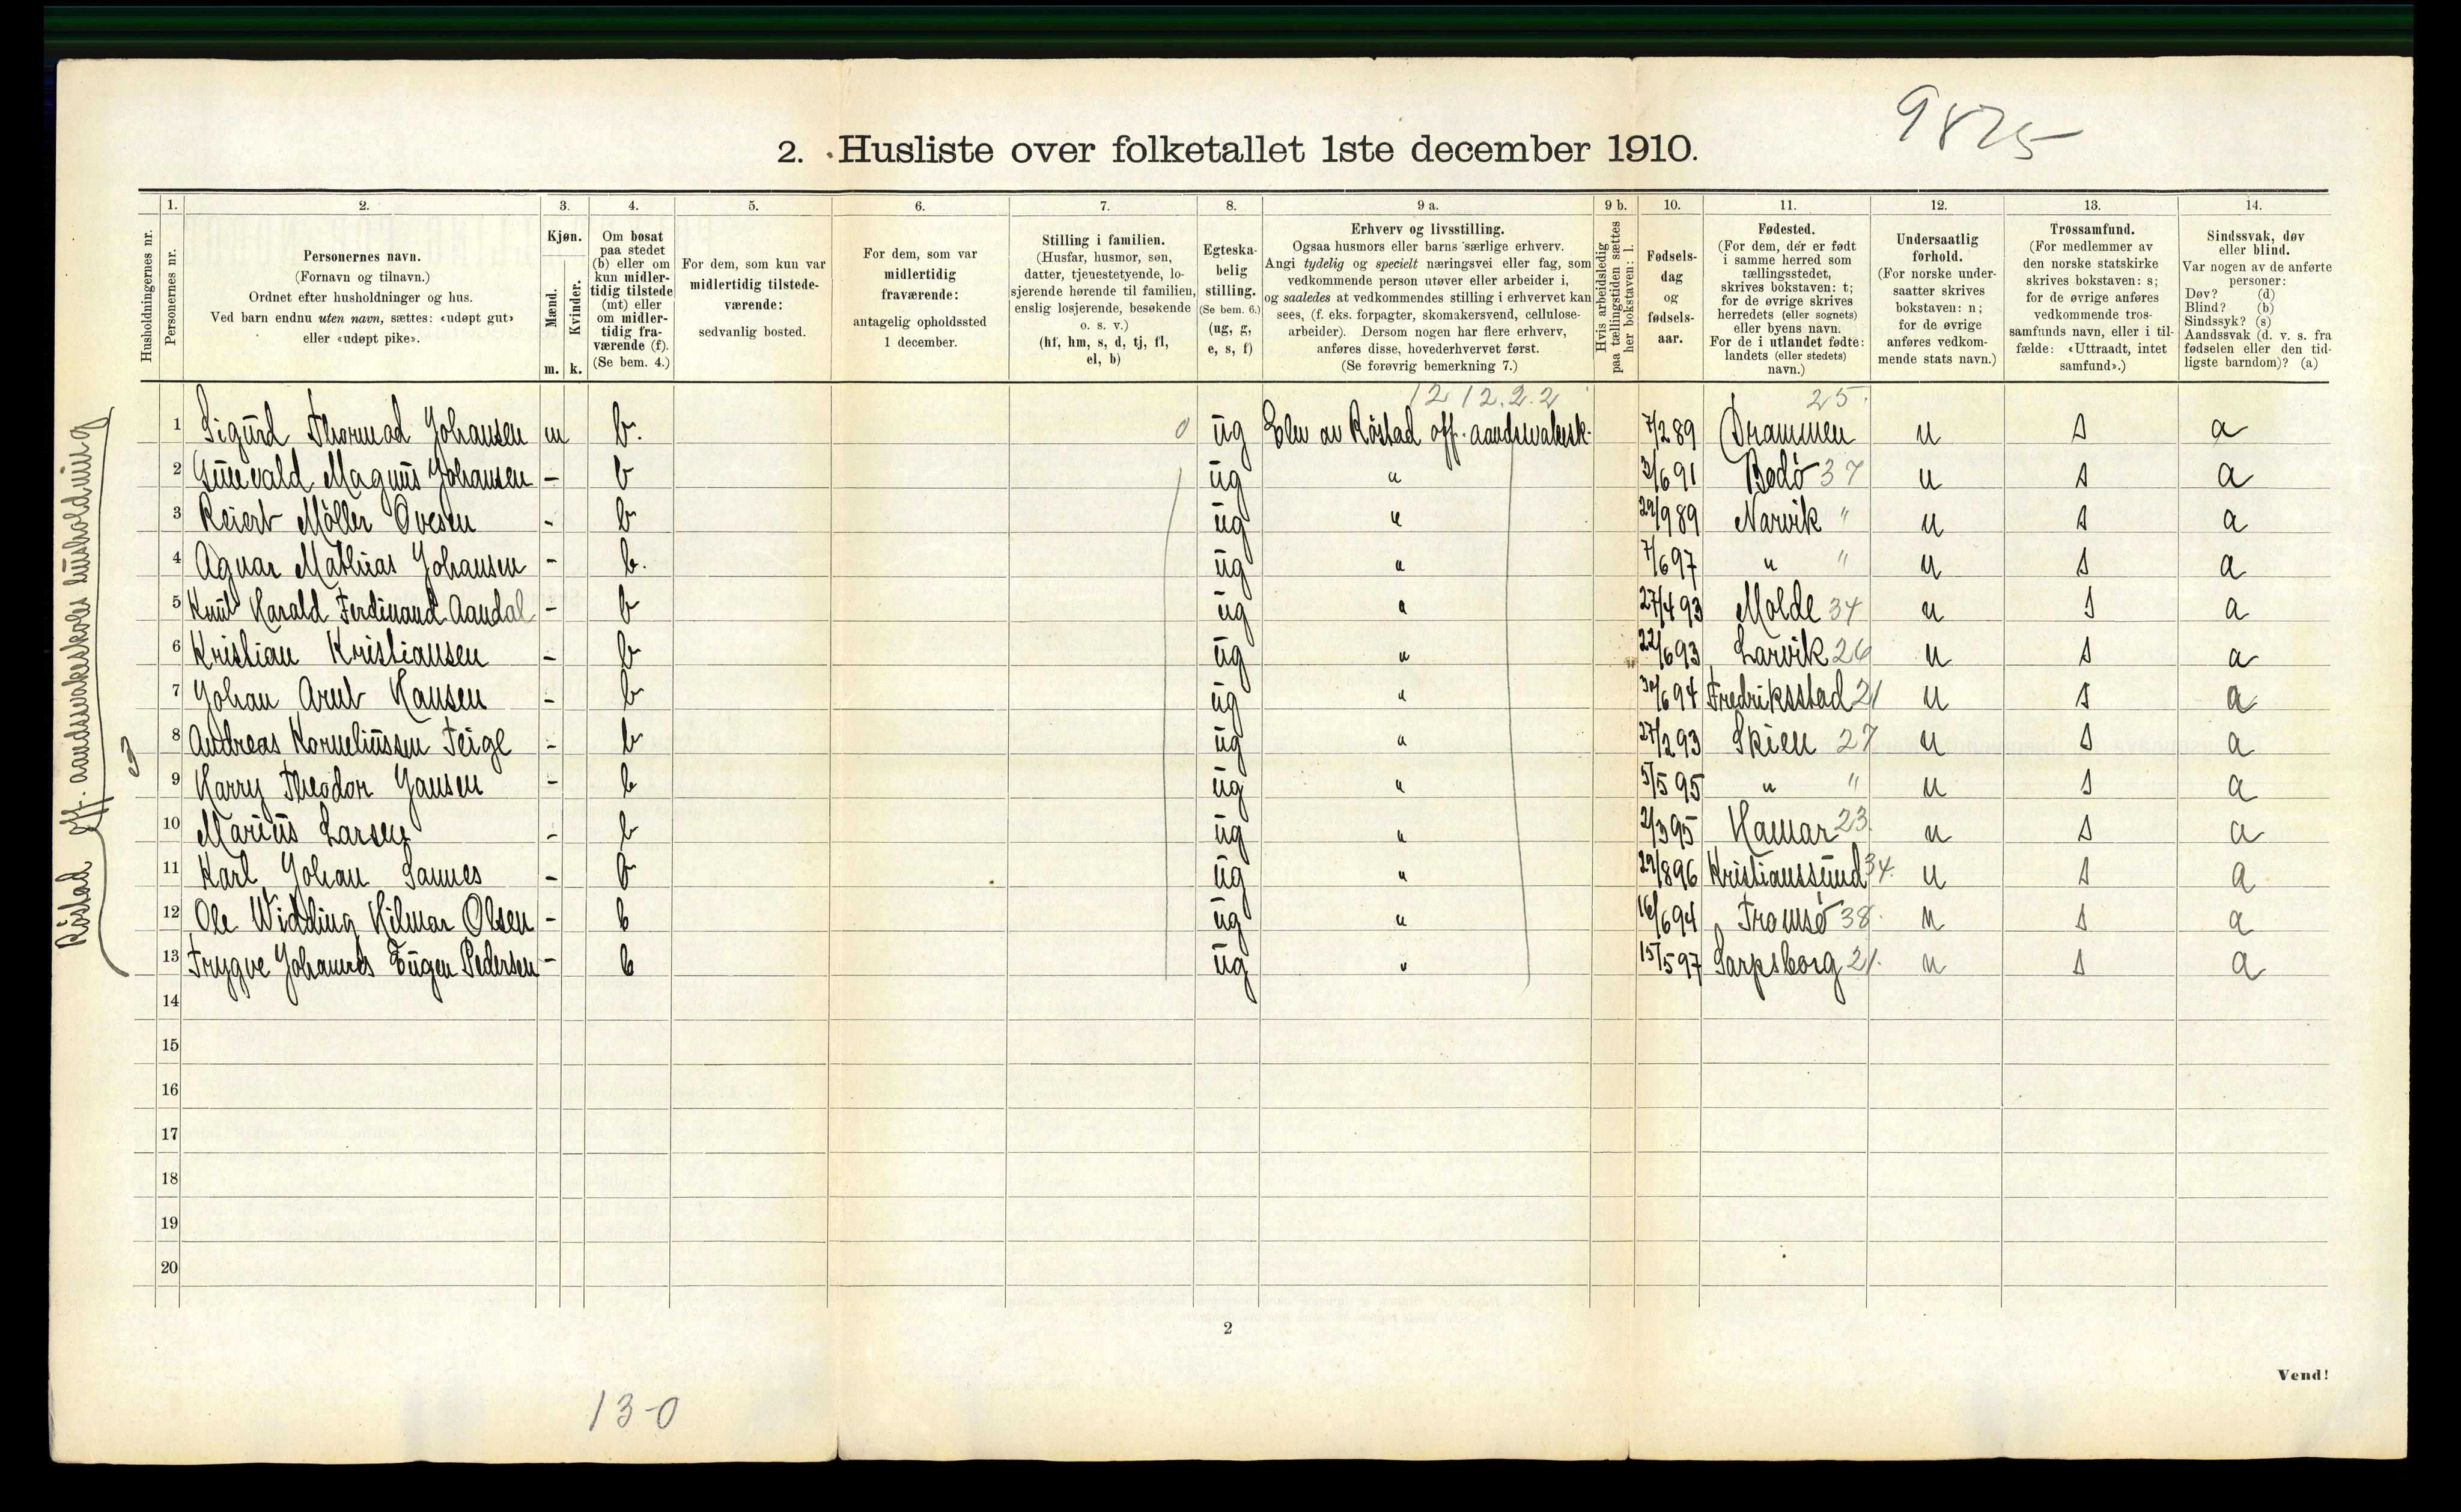 9825
2. Husliste over folketallet 1ste december 1910.
Husholdningernes nr.
1. Personernes nr.
2. Personernes navn. (Fornavn og tilnavn.) Ordnet efter husholdninger og hus. Ved barn endnu uten navn, sættes: «udøpt gut» eller «udøpt pike».
3. Kjøn. Mænd. m. Kvinder. k.
4. Om bosat paa stedet (b) eller om kun midlertidig tilstede (mt) eller om midlertidig fraværende (f). (Se bem. 4.)
5. For dem, som kun var midlertidig tilstedeværende: sedvanlig bosted.
6. For dem, som var midlertidig fraværende: antagelig opholdssted 1 december.
7. Stilling i familien. (Husfar, husmor, søn, datter, tjenestetyende, losjerende hørende til familien, enslig losjerende, besøkende o. s. v.) (hf, hm, s, d, tj, fl, el, b)
8. Egteskabelig stilling. (Se bem. 6.) (ug, g, e, s, f)
9 a. Erhverv og livsstilling. Ogsaa husmors eller barns særlige erhverv. Angi tydelig og specielt næringsvei eller fag, som vedkommende person utøver eller arbeider i, og saaledes at vedkommendes stilling i erhvervet kan sees, (f. eks. forpagter, skomakersvend, cellulosearbeider). Dersom nogen har flere erhverv, anføres disse, hovederhvervet først. (Se forøvrig bemerkning 7.)
9 b. Hvis arbeidsledig paa tællingstiden sættes her bokstaven: l.
10. Fødselsdag og fødselsaar.
11. Fødested. (For dem, der er født i samme herred som tællingsstedet, skrives bokstaven: t; for de øvrige skrives herredets (eller sognets) eller byens navn. For de i utlandet fødte: landets (eller stedets) navn.)
12. Undersaatlig forhold. (For norske undersaatter skrives bokstaven: n; for de øvrige anføres vedkommende stats navn.)
13. Trossamfund. (For medlemmer av den norske statskirke skrives bokstaven: s; for de øvrige anføres vedkommende trossamfunds navn, eller i tilfælde: «Uttraadt, intet samfund».)
14. Sindssvak, døv eller blind. Var nogen av de anførte personer: Døv? (d) Blind? (b) Sindssyk? (s) Aandssvak (d. v. s. fra fødselen eller den tidligste barndom)? (a)
Röstad off. aandssvakeskoles husholdning
3
12 12.2.2 25.
1 Sigurd Thormod Johansen m b. 0 ug Elev av Röstad off. aandssvakesk. 7/2 89 Drammen n s a
2 Gunevald Magnus Johansen - b ug " 3/6 91 Bodö 37 n s a
3 Reiert Möller Ovesen - b ug " 29/9 89 Narvik " n s a
4 Agnar Mathias Johansen - b. ug " 7/6 97 " " n s a
5 Knut Harald Ferdinand Aandal - b ug " 27/4 93 Molde 34 n s a
6 Kristian Kristiansen - b ug " 22/6 93 Larvik 26 n s a
7 Johan Arnt Hansen - b ug " 30/6 94 Fredriksstad 21 n s a
8 Andreas Korneliussen Teige - b ug " 27/2 93 Skien 27 n s a
9 Harry Theodor Jansen - b ug " 5/5 95 " " n s a
10 Marius Larsen - b ug " 2/3 95 Hamar 23. n s a
11 Karl Johan Sannes - b ug " 29/8 96 Kristianssund 34. n s a
12 Ole Widding Hilmar Olsen - b ug " 16/6 94 Tromsö 38. n s a
13 Trygve Johannes Eugen Pedersen - b ug " 15/5 97 Sarpsborg 21. n s a
14
15
16
17
18
19
20
2
Vend!
13-0